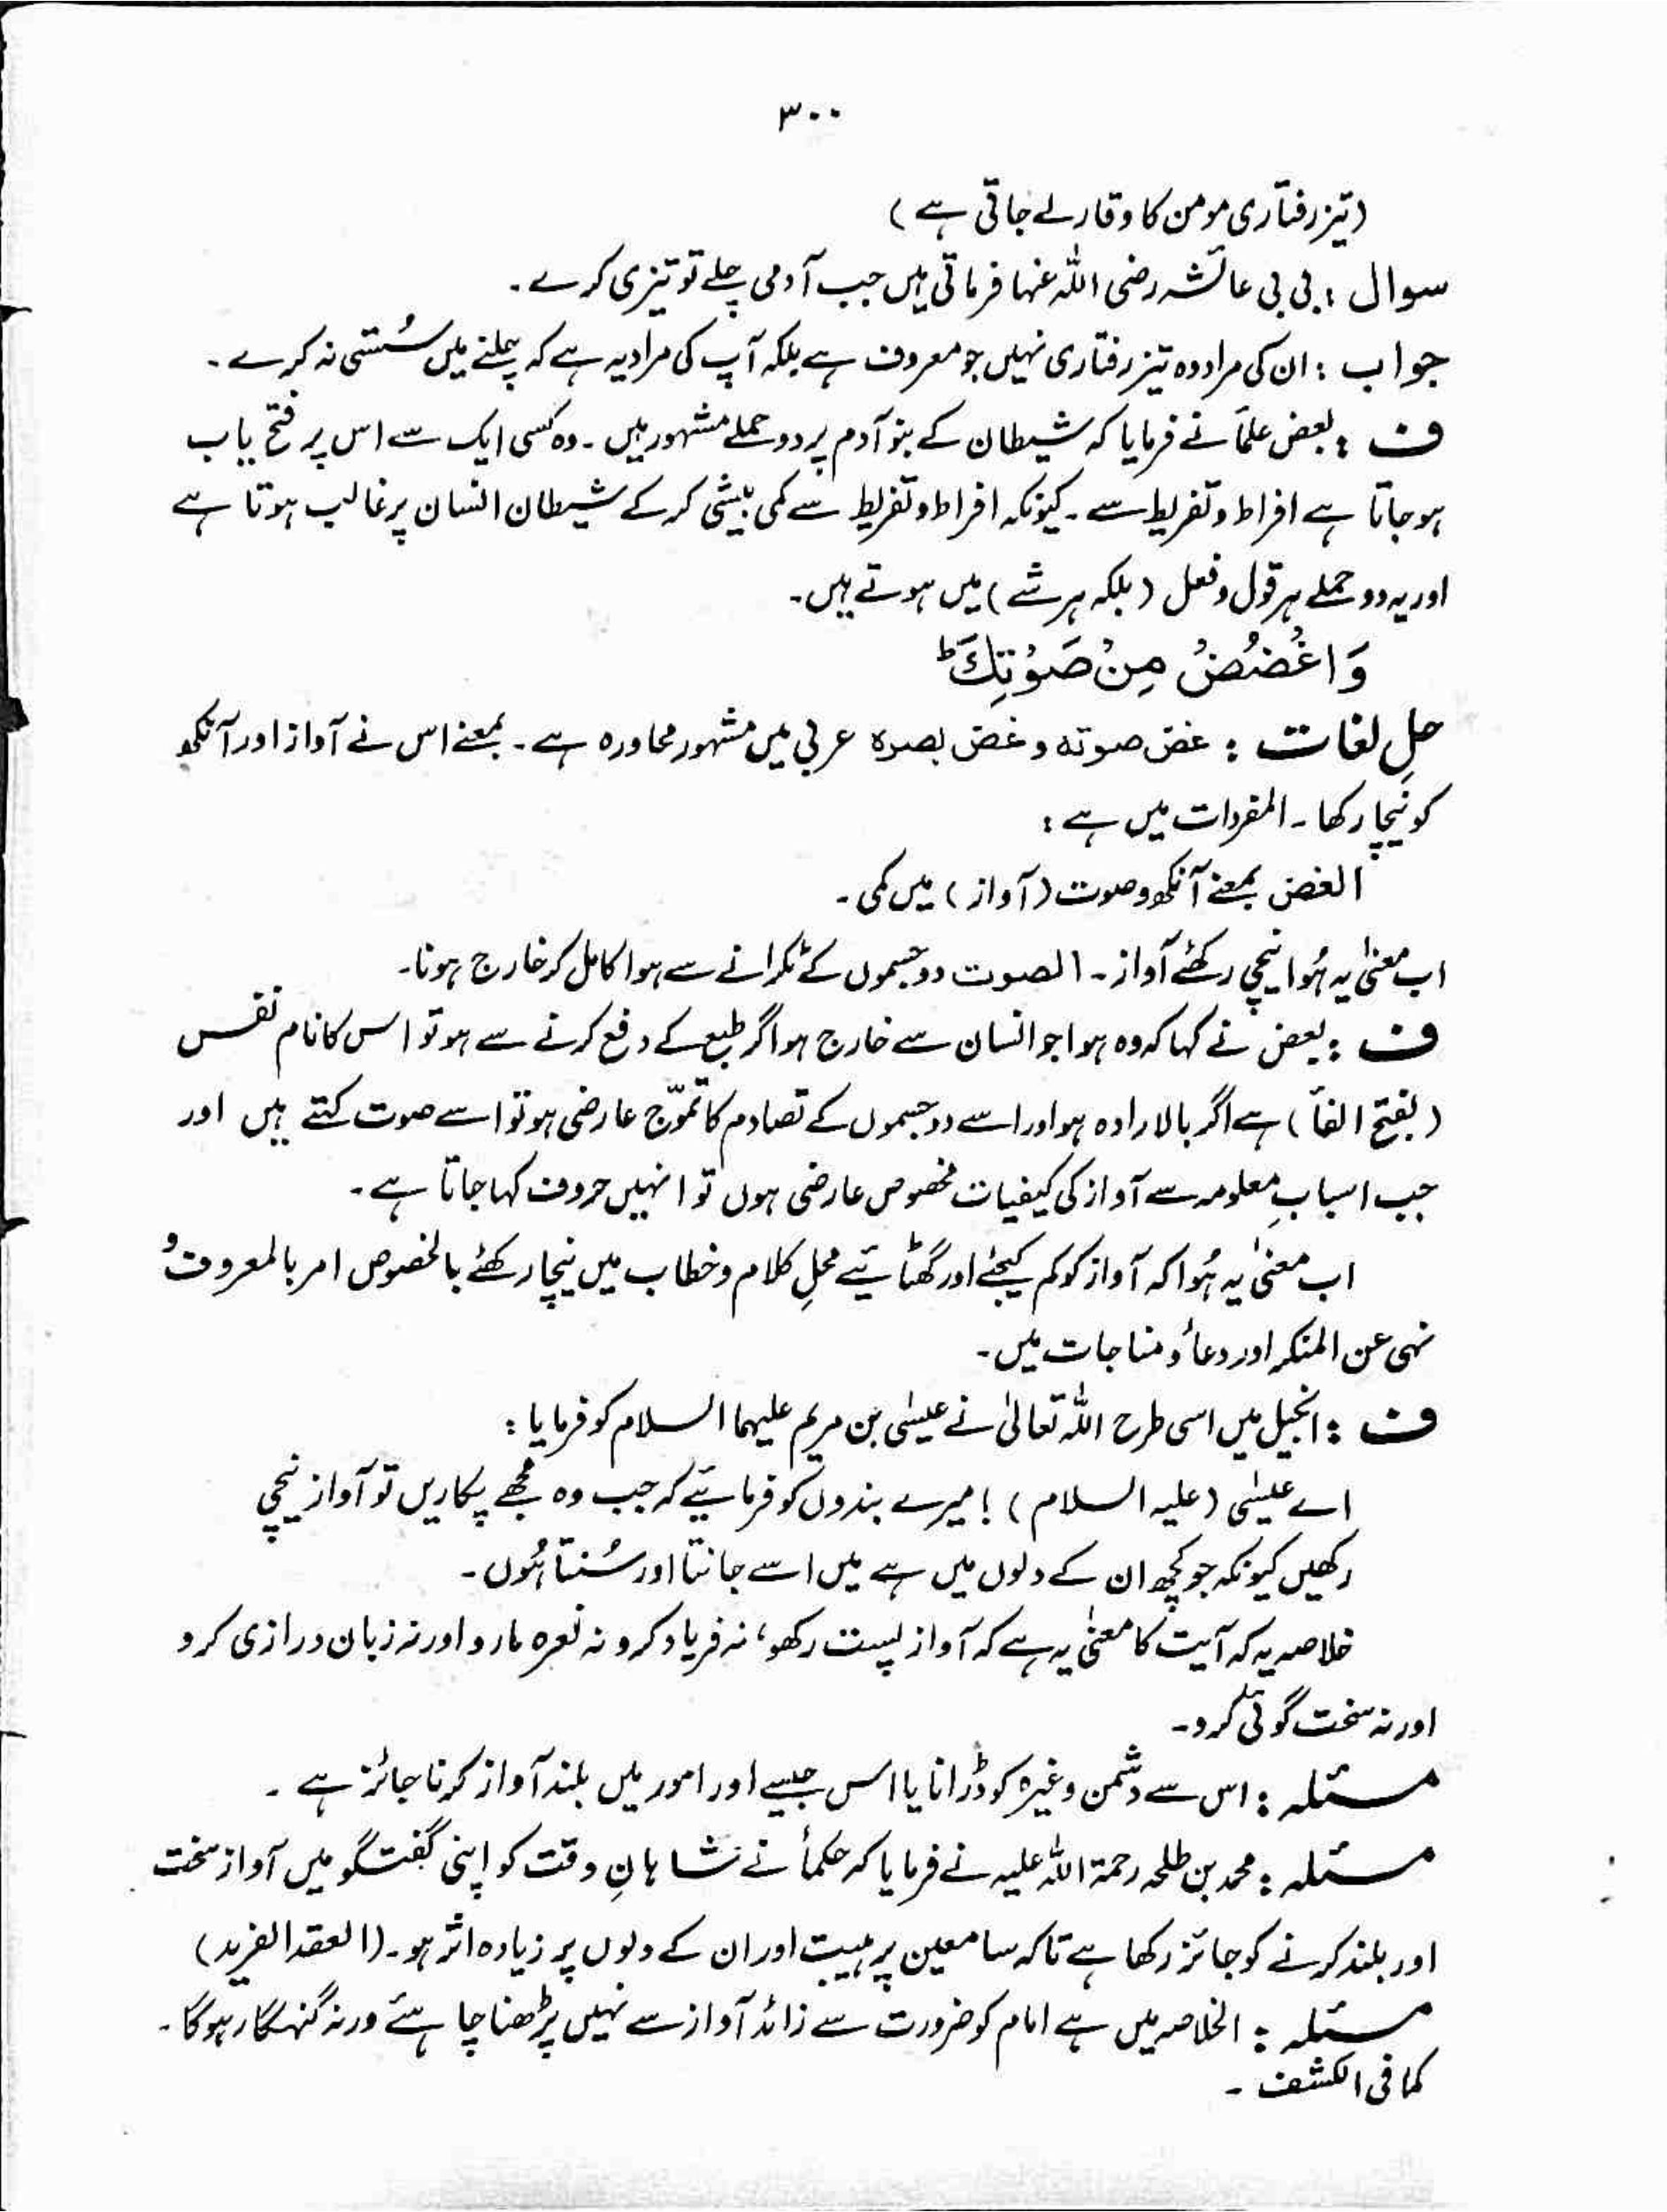 ۳۰۰
(تیز رفتاری مومن کا وقار لے جاتی ہے)
سوال : بی بی عائشہ رضی اللہ عنہا فرماتی ہیں جب آدمی چلے تو تیزی کرے ۔
جواب : ان کی مراد وہ تیز رفتاری نہیں جو معروف ہے بلکہ آپ کی مراد یہ ہے کہ چلنے میں سُستی نہ کرے ۔
ف : بعض علماء نے فرمایا کہ شیطان کے بنو آدم پر دو حملے مشہور ہیں ۔ وہ کسی ایک سے اس پر فتح یاب
ہو جاتا ہے افراط و تفریط سے ۔ کیونکہ افراط و تفریط سے کمی بیشی کر کے شیطان انسان پر غالب ہوتا ہے
اور یہ دو حملے ہر قول و فعل (بلکہ ہر شے) میں ہوتے ہیں ۔
وَاغْضُضْ مِنْ صَوْتِكَ ؕ
حلِ لغات : غض صوتہ و غض بصرہ عربی میں مشہور محاورہ ہے ۔ بمعنے اس نے آواز اور آنکھ
کو نیچا رکھا ۔ المفردات میں ہے :
الغض بمعنے آنکھ و صوت (آواز) میں کمی ۔
اب معنیٰ یہ ہُوا نیچی رکھئے آواز ۔ الصوت دو جسموں کے ٹکرانے سے ہوا کا مل کر خارج ہونا ۔
ف : بعض نے کہا کہ وہ ہوا جو انسان سے خارج ہو اگر طبع کے دفع کرنے سے ہو تو اس کا نام نفس
(بفتح الفاء) ہے اگر بالارادہ ہو اور اسے دو جسموں کے تصادم کا تموّج عارضی ہو تو اسے صوت کہتے ہیں اور
جب اسبابِ معلومہ سے آواز کی کیفیات مخصوص عارضی ہوں تو انہیں حروف کہا جاتا ہے ۔
اب معنیٰ یہ ہُوا کہ آواز کو کم کیجئے اور گھٹائیے محلِ کلام و خطاب میں نیچا رکھئے بالخصوص امر بالمعروف و
نہی عن المنکر اور دعاء و مناجات میں ۔
ف : انجیل میں اسی طرح اللہ تعالیٰ نے عیسٰی بن مریم علیہما السلام کو فرمایا :
اے عیسٰی (علیہ السلام) ! میرے بندوں کو فرمائیے کہ جب وہ مجھے پکاریں تو آواز نیچی
رکھیں کیونکہ جو کچھ ان کے دلوں میں ہے میں اسے جانتا اور سُنتا ہُوں ۔
خلاصہ یہ کہ آیت کا معنیٰ یہ ہے کہ آواز پست رکھو، نہ فریاد کرو نہ نعرہ مارو اور نہ زبان درازی کرو
اور نہ سخت گوئی کرو ۔
مسئلہ : اس سے دشمن وغیرہ کو ڈرانا یا اس جیسے اور امور میں بلند آواز کرنا جائز ہے ۔
مسئلہ : محمد بن طلحہ رحمۃ اللہ علیہ نے فرمایا کہ حکماء نے شاہانِ وقت کو اپنی گفتگو میں آواز سخت
اور بلند کرنے کو جائز رکھا ہے تاکہ سامعین پر ہیبت اور ان کے دلوں پر زیادہ اثر ہو ۔ (العقد الفرید)
مسئلہ : الخلاصہ میں ہے امام کو ضرورت سے زائد آواز سے نہیں پڑھنا چاہئے ورنہ گنہگار ہوگا ۔
کما فی الکشف ۔